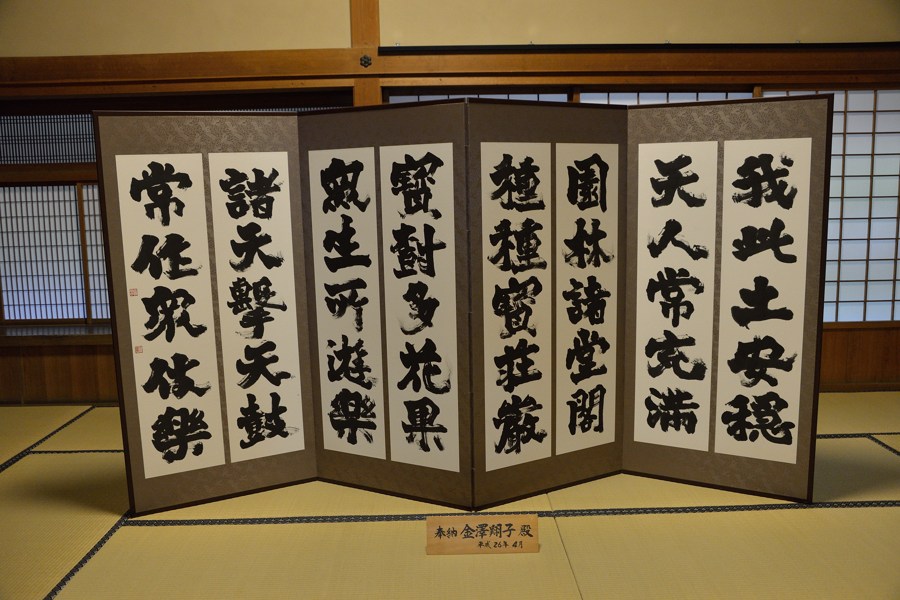 我此土安穏
天人常充満
園林諸堂閣
種種寳荘厳
寳樹多花果
衆生所遊樂
諸天擊天鼓
常作衆伎樂
奉納 金澤翔子 殿
平成26年4月